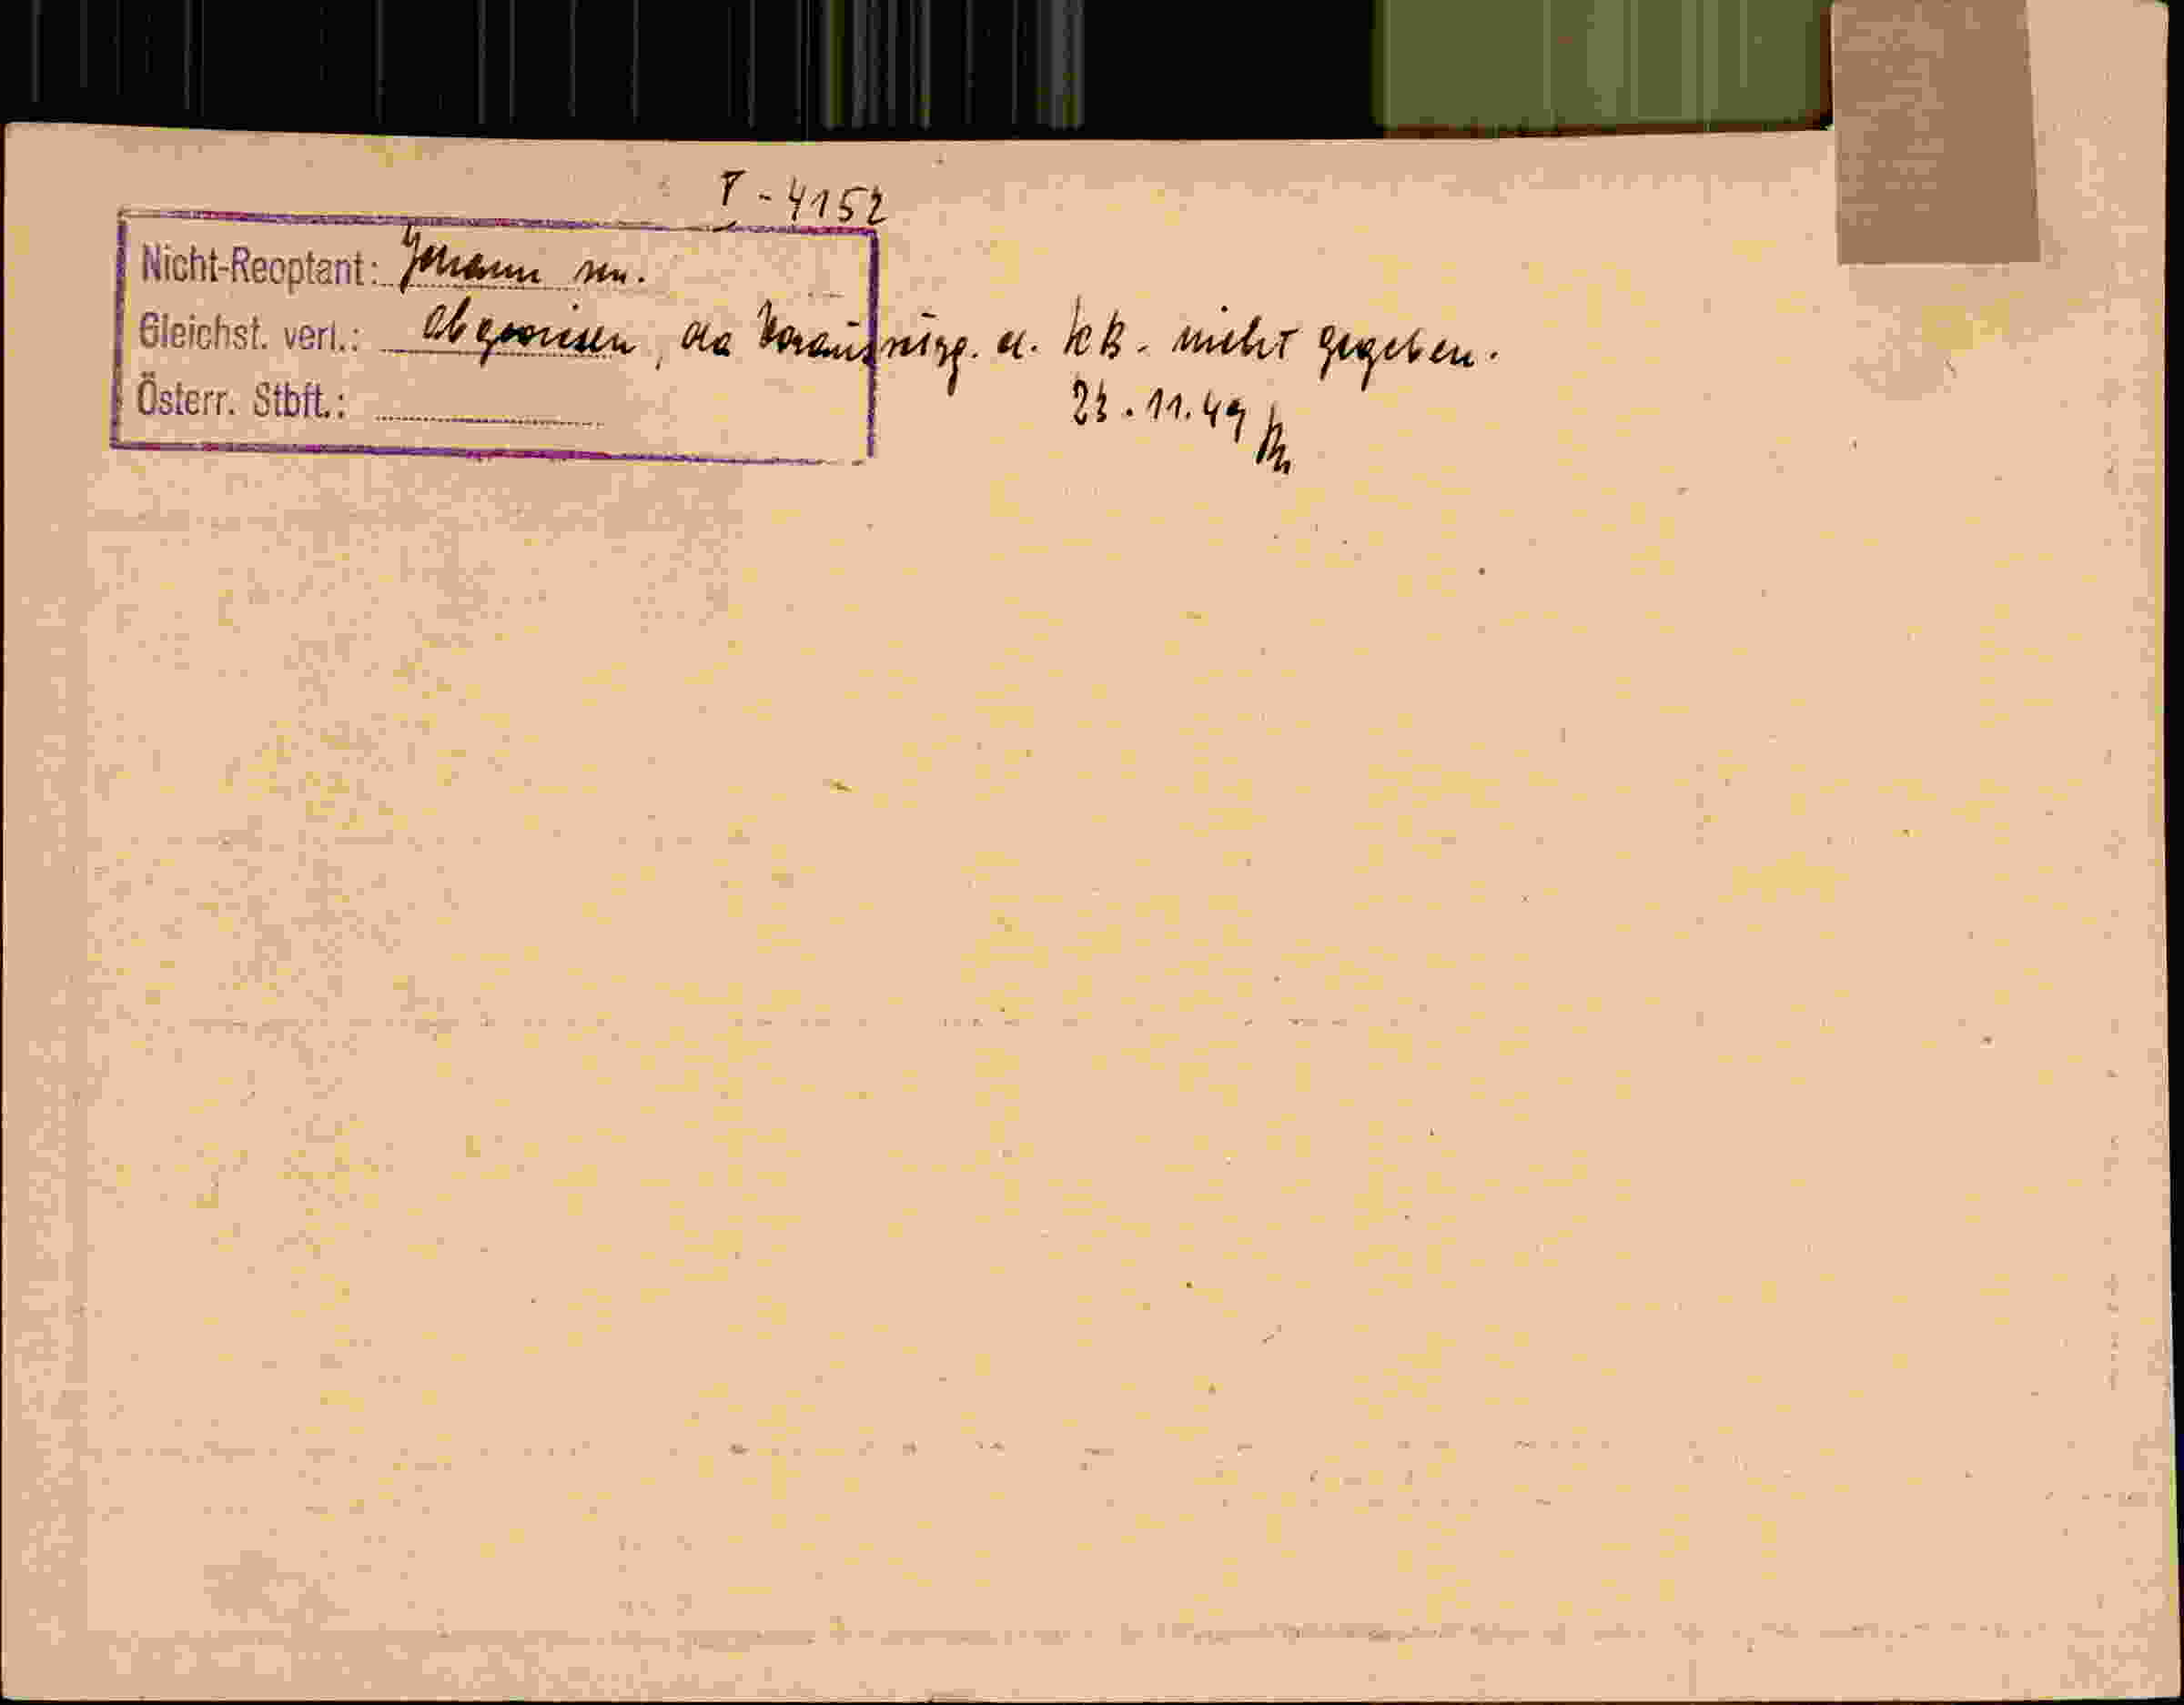 T-4152
Nicht-Reoptant: Johann sen.
Gleichst. verl.: abgewiesen, da Voraussetzg. d. KB. nicht gegeben.
Österr. Stbft.:
23.11.49